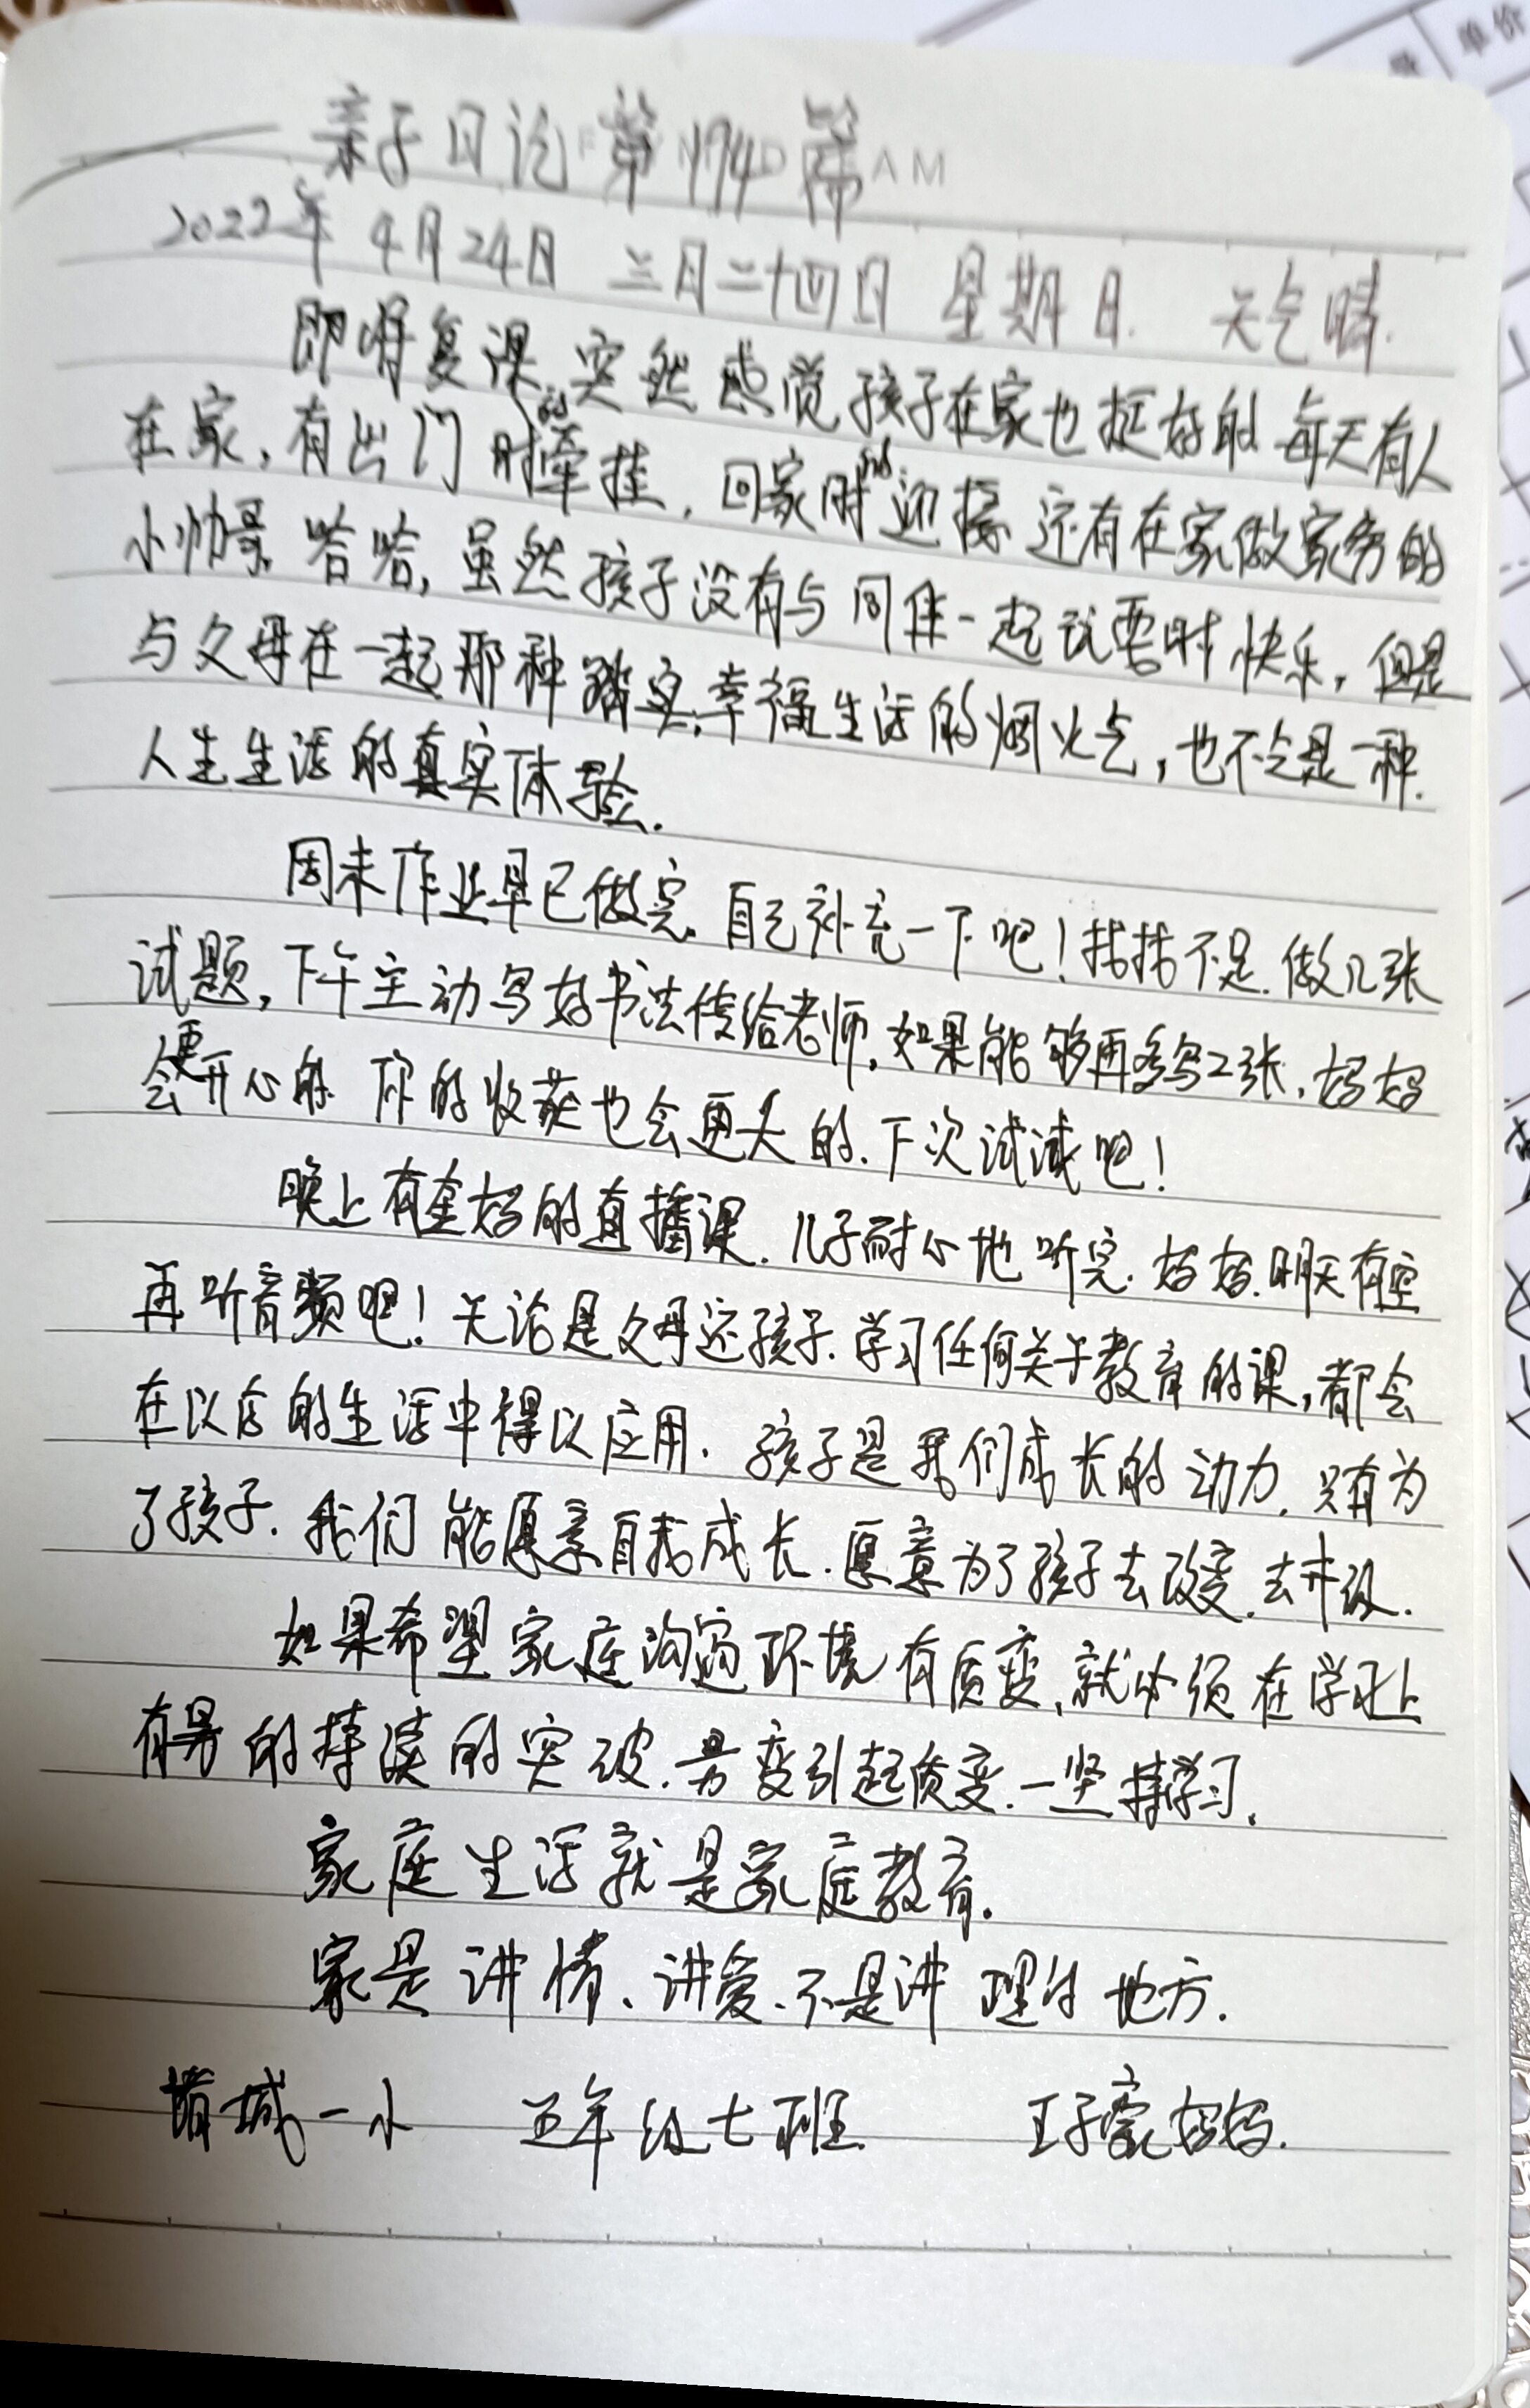 亲子日记第174篇
2022年4月24日 三月二十四日 星期日. 天气晴.
即将复课,突然感觉孩子在家也挺好的 每天有人
在家,有出门时的牵挂,回家时的迎接 还有在家做家务的
小帅哥 哈哈,虽然孩子没有与同伴一起玩耍时快乐,但是
与父母在一起那种踏实,幸福生活的烟火气,也不会是一种
人生生活的真实体验.
周末作业早已做完,自己补充一下吧!找找不足.做几张
试题,下午主动写好书法传给老师,如果能够再多写2张,妈妈
会更开心的 你的收获也会更大的.下次试试吧!
晚上有奎妈的直播课.儿子耐心地听完.妈妈.明天有空
再听音频吧!无论是父母还孩子.学习任何关于教育的课,都会
在以后的生活中得以应用.孩子是我们成长的动力.只有为
了孩子.我们能愿意自我成长.愿意为了孩子去改变.去升级.
如果希望家庭沟通环境有质变,就必须在学习上
有量的持续的突破.量变引起质变.一坚持学习.
家庭生活就是家庭教育.
家是讲情、讲爱.不是讲理的地方.
城一小 五年级七班 王子豪妈妈.
单价